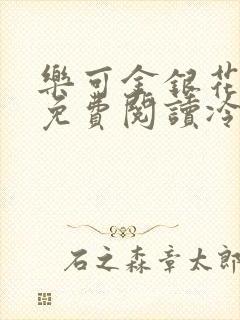 樂可金銀花
免費閱讀冷
石之森章太郎